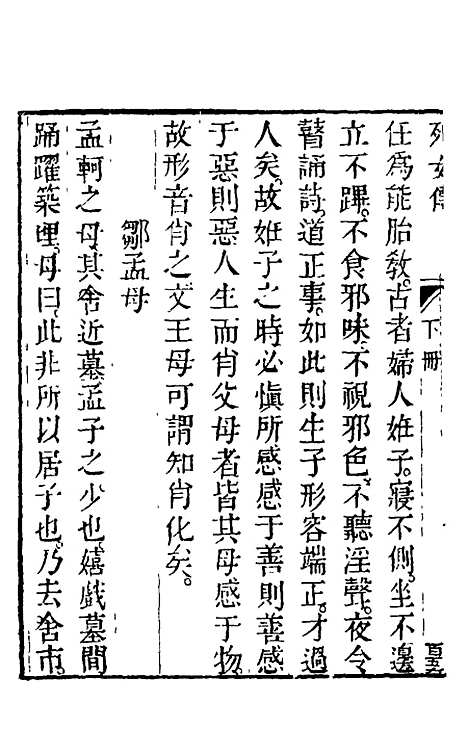 列女傳 下冊
任爲能胎敎。古者婦人姙子。寢不側。坐不邊
立不蹕。不食邪味。不視邪色。不聽淫聲。夜令
瞽誦詩。道正事。如此則生子形容端正。才過
人矣。故姙子之時必愼所感感于善則善感
于惡則惡人生而肖父母者皆其母感于物。
故形音肖之文王母可謂知肖化矣。
鄒孟母
孟軻之母。其舍近墓。孟子之少也。嬉戲墓間
踊躍築埋。母曰。此非所以居子也。乃去舍市。